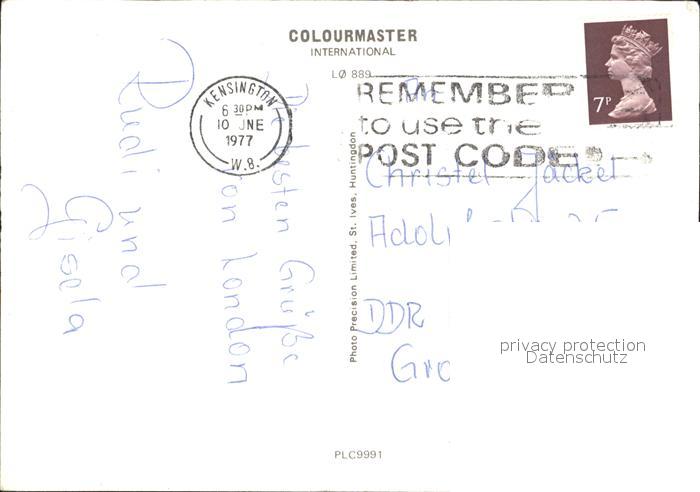 COLOURMASTER
INTERNATIONAL
LØ 889
KENSINGTON
6 30PM
10 JNE
1977
W.8.
REMEMBER
to use the
POST CODE
7P
Die besten Grüße
von London
Rudi und
Gisela
Photo Precision Limited, St. Ives, Huntingdon
Christel Jäckel
Adol
DDR
Gro
privacy protection
Datenschutz
PLC9991